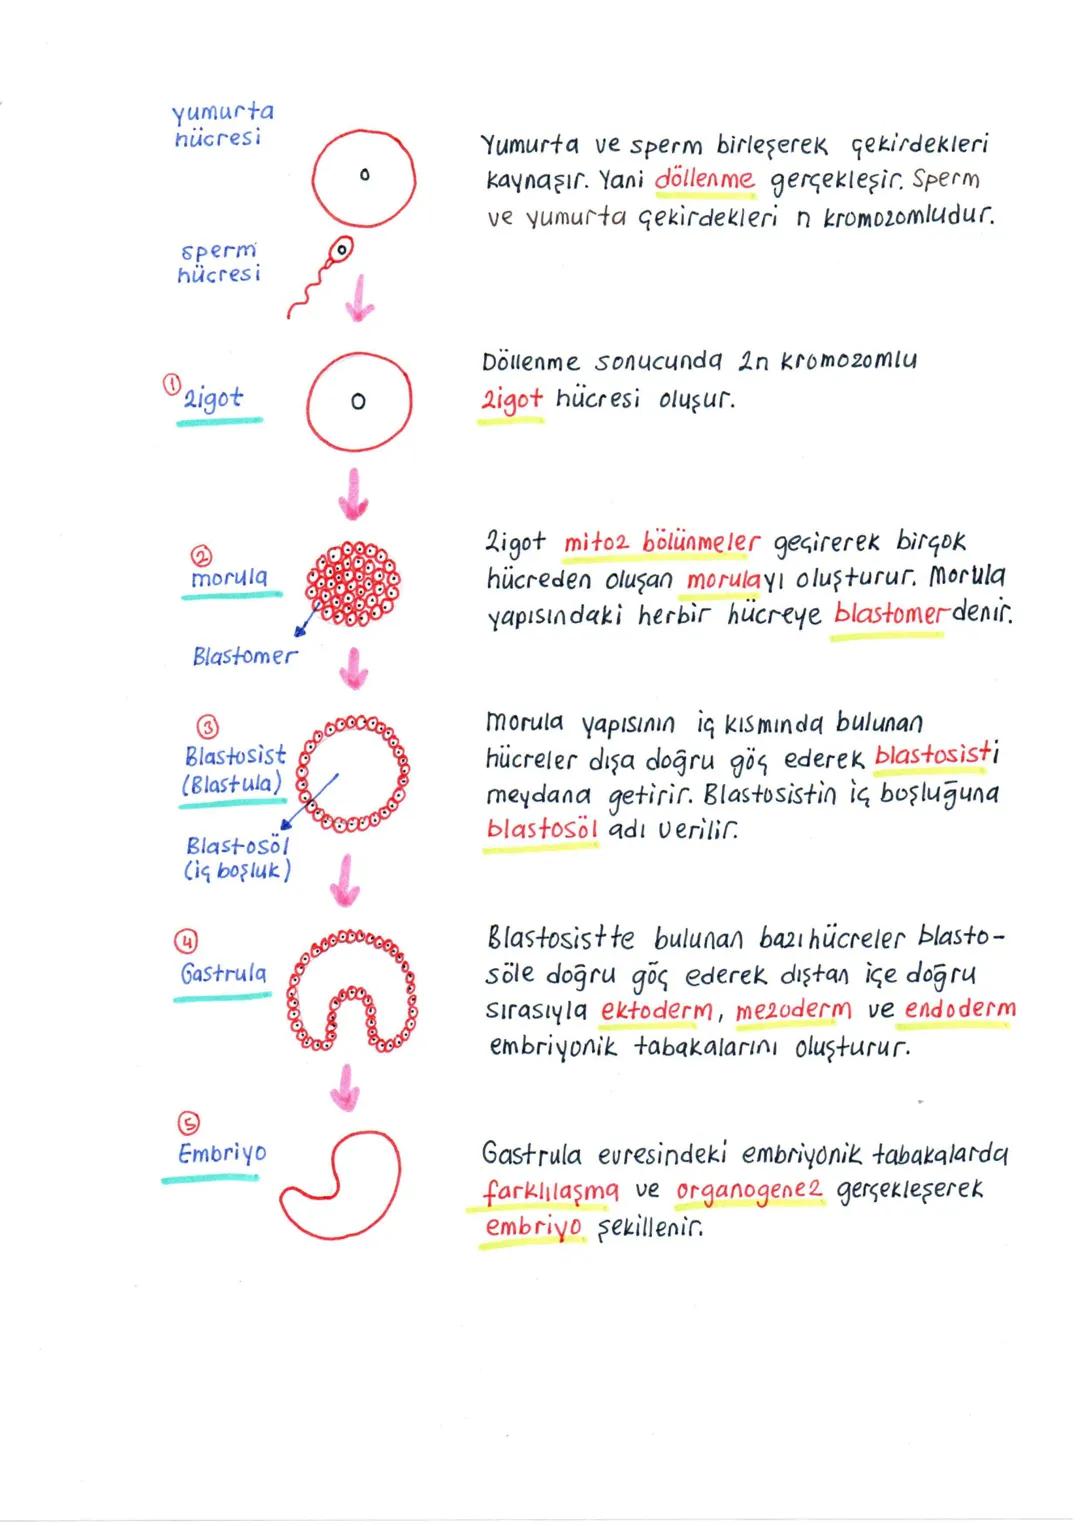 yumurta
hücresi
Yumurta ve sperm birleşerek çekirdekleri
kaynaşır. Yani döllenme gerçekleşir. Sperm
ve yumurta çekirdekleri n kromozomludur.
sperm
hücresi
Döllenme sonucunda 2n kromozomlu
① zigot
zigot hücresi oluşur.
② morula
Zigot mitoz bölünmeler geçirerek birçok
hücreden oluşan morulayı oluşturur. Morula
yapısındaki herbir hücreye blastomer denir.
Blastomer
③
Blastosist
(Blastula)
Morula yapısının iç kısmında bulunan
hücreler dışa doğru göç ederek blastosisti
meydana getirir. Blastosistin iç boşluğuna
blastosöl adı verilir.
Blastosöl
(iç boşluk)
④
Gastrula
Blastosistte bulunan bazı hücreler blasto-
söle doğru göç ederek dıştan içe doğru
sırasıyla ektoderm, mezoderm ve endoderm
embriyonik tabakalarını oluşturur.
⑤
Embriyo
Gastrula evresindeki embriyonik tabakalarda
farklılaşma ve organogenez gerçekleşerek
embriyo şekillenir.